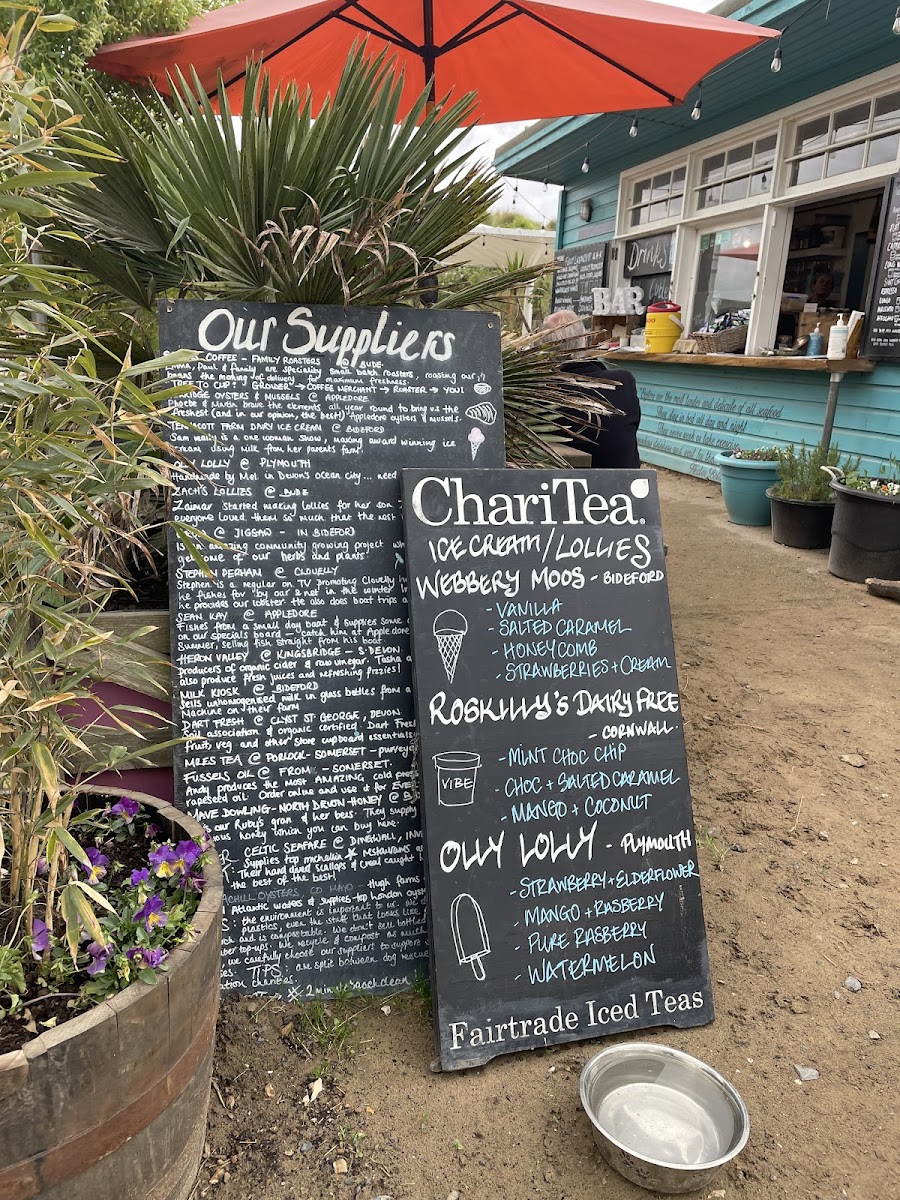 Our Suppliers
COFFEE - FAMILY ROASTERS @ BUDE
Paul & Family are speciality small batch roasters, roasting our
beans the morning of delivery for maximum freshness.
TREE TO CUP! GROWER → COFFEE MERCHANT → ROASTER → YOU!
OYSTERS & MUSSELS @ APPLEDORE
Phoebe & Martin brave the elements all year round to bring us the
freshest (and in our opinion, the best!) Appledore oysters & mussels.
FARM DAIRY ICE CREAM @ BIDEFORD
Sam really is a one woman show, making award winning ice
cream using milk from her parents farm.
OLLY LOLLY @ PLYMOUTH
Handmade by Mel in Devon's ocean city... need
ZACH'S LOLLIES @ BUDE
Zaimar started making lollies for her son
everyone loved them so much that the rest
@ JIGSAW - IN BIDEFORD
is an amazing community growing project
get some of our herbs and plants!
STEPHEN PERHAM @ CLOVELLY
Stephen is a regular on TV promoting Clovelly
he fishes for by oar & net in the winter
he provides our lobster. He also does boat trips
SEAN KAY @ APPLEDORE
Fishes from a small day boat & supplies some
on our specials board - catch him at Appledore
Summer, selling fish straight from his boat
HERON VALLEY @ KINGSBRIDGE - S. DEVON
producers of organic cider & raw vinegar. Tasha
also produce fresh juices and refreshing frizzies!
MILK KIOSK @ BIDEFORD
Sells unhomogenised milk in glass bottles from a
Machine on their farm
DART FRESH @ CLYST ST GEORGE, DEVON
Soil association & organic certified. Dart Fresh
fruit, veg and other store cupboard essentials
MILES TEA @ PORLOCK - SOMERSET
FUSSELS OIL @ FROM - SOMERSET.
Andy produces the most AMAZING, cold
rapeseed oil. Order online and use it for
DAVE DOWLING - NORTH DEVON HONEY @
our Ruby's gran & her bees. They supply
honey which you can buy here.
CELTIC SEAFARE @ DINGWALL,
Supplies top michelin ★ restaurants
Their hand dived scallops & creel caught
the best of the best!
ACHILL OYSTERS, CO MAYO - Hugh farms
Atlantic waters & supplies top London
the environment is important to us. We
plastics, even the stuff that looks like
and is compostable. We don't sell bottled
top-ups. We recycle & compost as much
we carefully choose our suppliers to support
TIPS are split between dog rescue
# 2 minute beach clean
ChariTea
ICE CREAM / LOLLIES
WEBBERY MOOS - BIDEFORD
- VANILLA
- SALTED CARAMEL
- HONEYCOMB
- STRAWBERRIES + CREAM
ROSKILLY'S DAIRY FREE
- CORNWALL.
VIBE
- MINT CHOC CHIP
- CHOC + SALTED CARAMEL
- MANGO + COCONUT
OLLY LOLLY - PLYMOUTH
- STRAWBERRY + ELDERFLOWER
- MANGO + RASBERRY
- PURE RASBERRY
- WATERMELON
Fairtrade Iced Teas
DRINKS
BAR